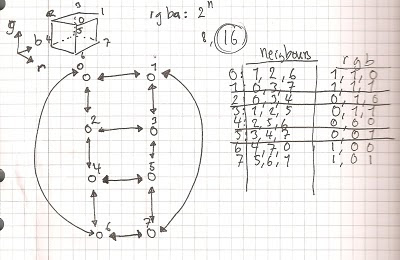 rgba: 2ⁿ
8, 16
g
b
r
2 3 1
0
5
7
6
neighbours
r g b
0: 1, 2, 6 1, 1, 0
1: 0, 3, 7 1, 1, 1
2: 0, 3, 4 0, 1, 0
3: 1, 2, 5 0, 1, 1
4: 2, 5, 6 0, 0, 0
5: 3, 4, 7 0, 0, 1
6: 4, 7, 0 1, 0, 0
7: 5, 6, 1 1, 0, 1
0 1
2 3
4 5
6 7